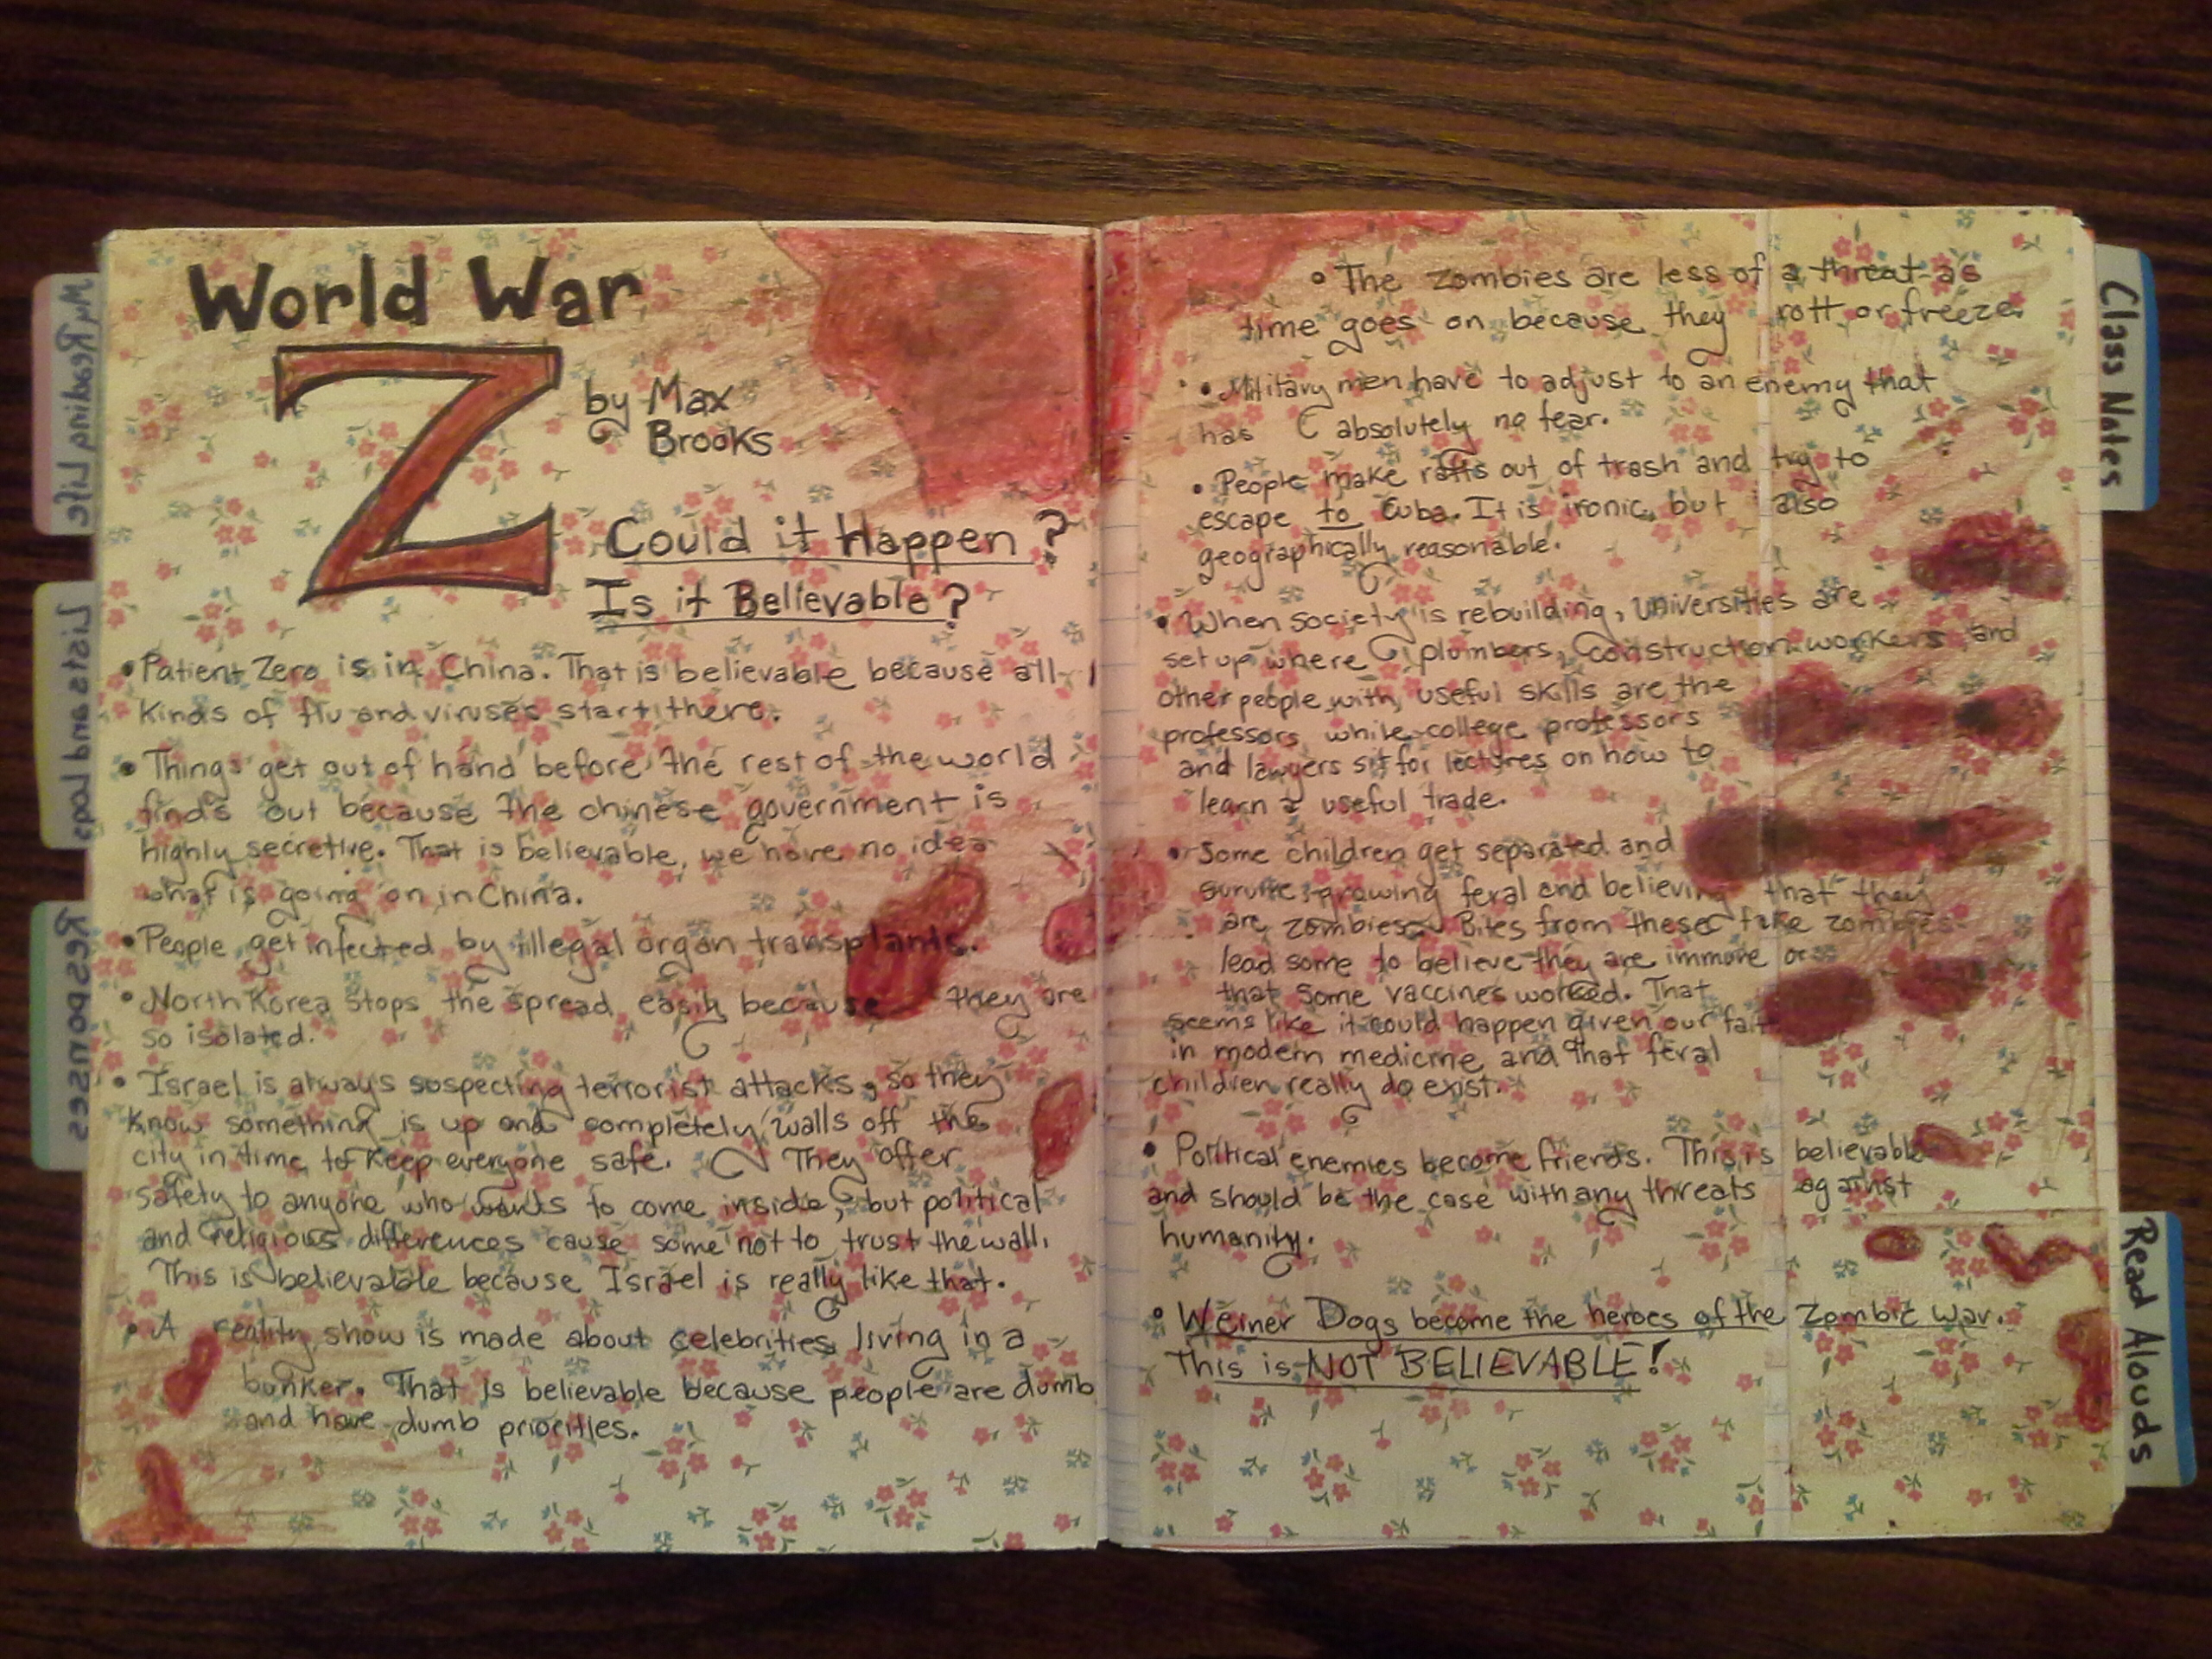 World War
Z
by Max
Brooks
Could it Happen?
Is it Believable?
• Patient Zero is in China. That is believable because all
kinds of flu and viruses start there.
• Things get out of hand before the rest of the world
finds out because the chinese government is
highly secretive. That is believable, we have no idea
what is going on in China.
• People get infected by illegal organ transplants.
• North Korea stops the spread easily because they are
so isolated.
• Israel is always suspecting terrorist attacks, so they
know something is up and completely walls off the
city in time to keep everyone safe. They offer
safety to anyone who wants to come inside, but political
and religious differences cause some not to trust the wall.
This is believable because Israel is really like that.
• A reality show is made about celebrities living in a
bunker. That is believable because people are dumb
and have dumb priorities.
• The zombies are less of a threat as
time goes on because they rott or freeze.
• Military men have to adjust to an enemy that
has absolutely no fear.
• People make rafts out of trash and try to
escape to Cuba. It is ironic, but also
geographically reasonable.
• When society is rebuilding, universities are
set up where plumbers, construction workers and
other people with useful skills are the
professors while college professors
and lawyers sit for lectures on how to
learn a useful trade.
• Some children get separated and
survive growing feral and believing that they
are zombies. Bites from these fake zombies
lead some to believe they are immune or
that some vaccines worked. That
seems like it could happen given our fait
in modern medicine and that feral
children really do exist.
• Political enemies become friends. This is believable
and should be the case with any threats against
humanity.
• Weiner Dogs become the heroes of the zombie war.
This is NOT BELIEVABLE!
My Reading Life
Lists and Logs
Responses
Class Notes
Read Alouds